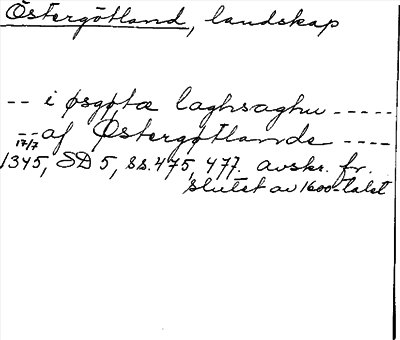 Östergötland, landskap
-- i øsgøtæ laghsaghu -----
-- af Østergøtlande ----
17/7
1345, SD 5, ss. 475, 477. avskr. fr.
slutet av 1600-talet